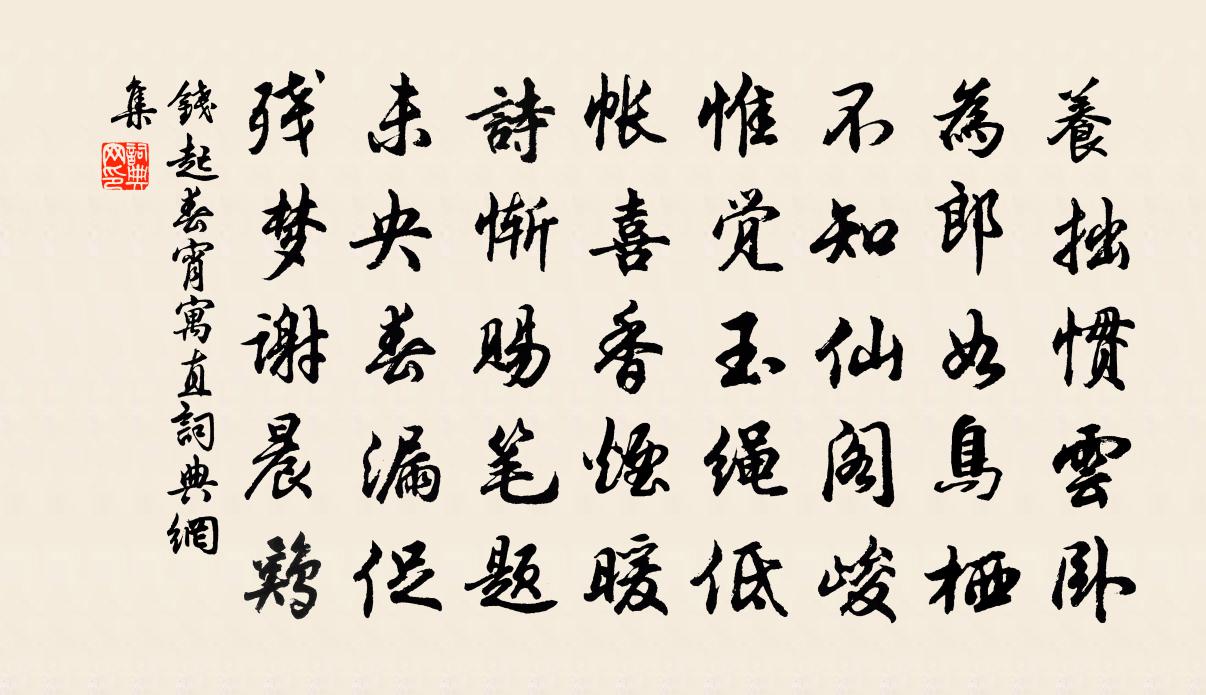 養拙慣雲卧
為郎如鳥栖
不知仙閣峻
惟觉玉繩低
帳喜香煙暖
詩慚賜笔題
未央春漏促
残梦謝晨鷄
錢起春宵寓直詞典網
集
詞典网印